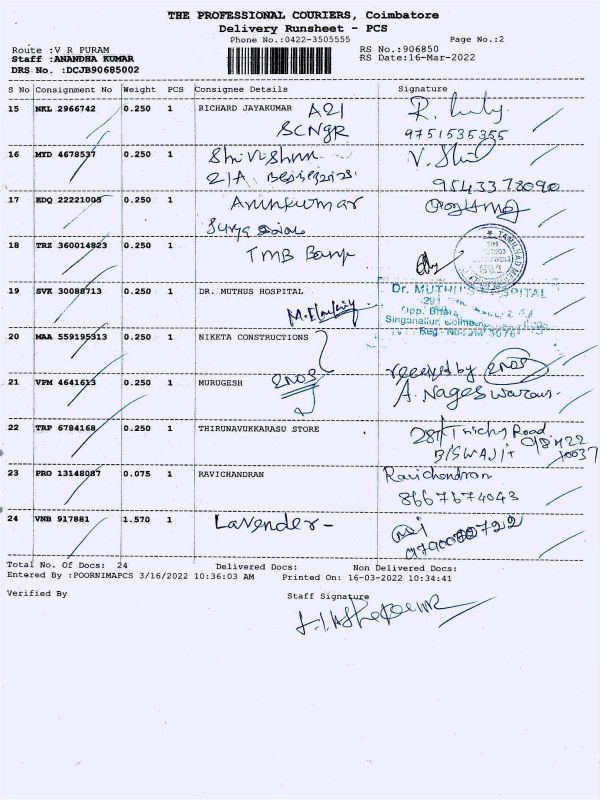 THE PROFESSIONAL COURIERS, Coimbatore
Delivery Runsheet - PCS
Phone No.:0422-3505555 Page No.:2
Route :V R PURAM RS No.:906850
Staff :ANANDHA KUMAR RS Date:16-Mar-2022
DRS No. :DCJB90685002
S No Consignment No Weight PCS Consignee Details Signature
15 NKL 2966742 0.250 1 RICHARD JAYAKUMAR A21
SCNGR 9751535355
16 MYD 4678537 0.250 1 Shivishnu
21A 9543378090
17 EDQ 22221005 0.250 1 Arunkumar
Surya
18 TRZ 360014823 0.250 1 TMB Bank
19 SVK 30088713 0.250 1 DR. MUTHUS HOSPITAL Dr. MUTHU'S HOSPITAL
Opp.
Singanallur, Coimbatore
Reg. No:
20 MAA 559195313 0.250 1 NIKETA CONSTRUCTIONS
received by 2NOS
21 VPM 4641613 0.250 1 MURUGESH 2NOS A. Nageswaran
22 TRP 6784168 0.250 1 THIRUNAVUKKARASU STORE 28A Trichy Road
23 PRO 13148087 0.075 1 RAVICHANDRAN Ravichandran
8667674043
24 VNB 917881 1.570 1 Lavender-
Total No. Of Docs: 24 Delivered Docs: Non Delivered Docs:
Entered By :POORNIMAPCS 3/16/2022 10:36:03 AM Printed On: 16-03-2022 10:34:41
Verified By Staff Signature